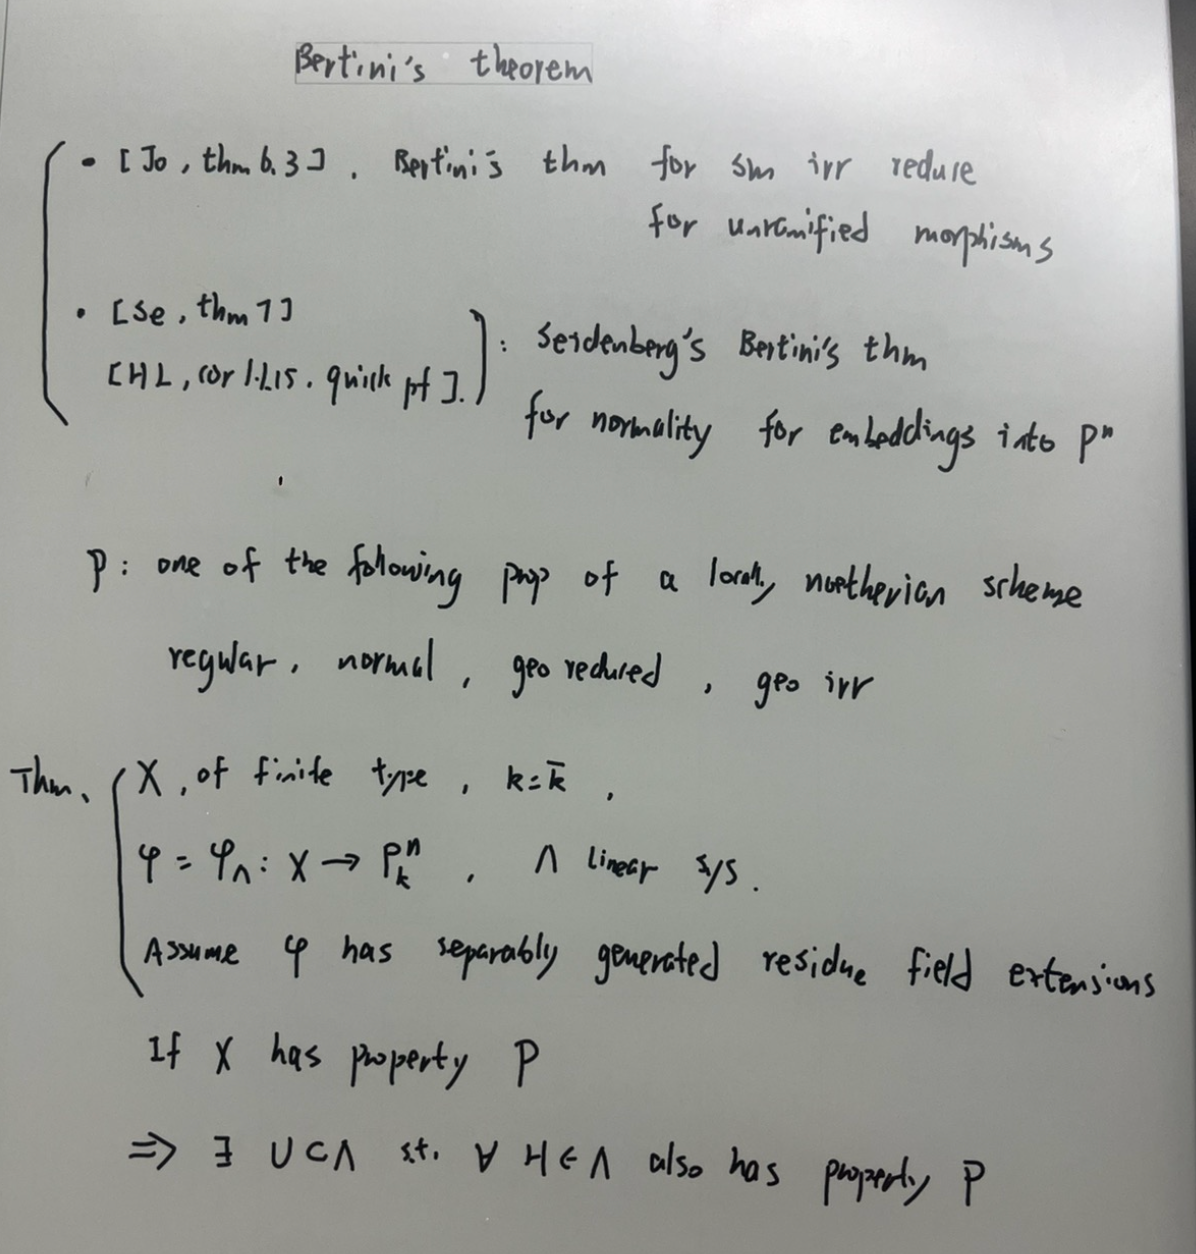 Bertini's theorem
• [Jo, thm 6.3]. Bertini's thm for sm irr reduce
for unramified morphisms
• [Se, thm 7]
[HL, cor 1.1.15. quick pf].
: Seidenberg's Bertini's thm
for normality for embeddings into Pⁿ
P: one of the following prop of a locally noetherian scheme
regular, normal, geo reduced, geo irr
Thm. X, of finite type, k=k̄,
φ = φ_Λ: X → Pⁿ_k, Λ linear s/s.
Assume φ has separably generated residue field extensions
If X has property P
⇒ ∃ U⊂Λ s.t. ∀ H∈Λ also has property P